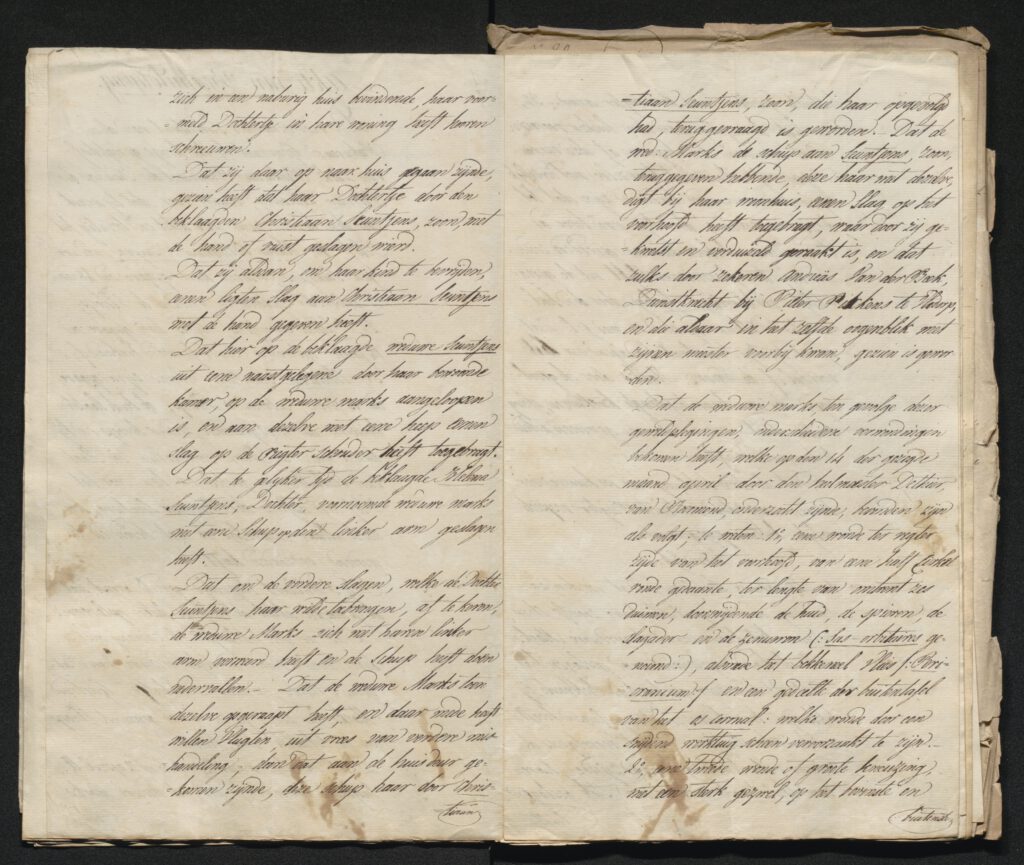 zich in een naburig huis bevindende, haar voor-
=meld Dochtertje in hare woning heeft hooren
schreeuwen.
Dat zij daar op naar huis gegaan zijnde,
gezien heeft dat haar Dochtertje door den
beklaagden Christiaan Seuntjens, zoon, met
de hand of vuist geslagen wierd.
Dat zij aldaar, om haar kind te bevrijden,
eenen ligten slag aan Christiaan Seuntjens
met de hand gegeven heeft.
Dat hier op de beklaagde weduwe Seuntjens
uit eene naastgelegene door haar bewoonde
kamer, op de weduwe Marks aangeloopen
is, en aan dezelve met eene schup eenen
slag op de regter schouder heeft toegebragt.
Dat te gelyker tyd de beklaagde
Seuntjens, Dochter, voornoemde weduwe Marks
met eene Schup op den linker arm geslagen
heeft.
Dat om de verdere slagen, welke de Dochter
Seuntjens haar wilde toebrengen, af te keren,
de weduwe Marks zich met haren linker
arm verweerd heeft en de Schup heeft doen
nedervallen. _ Dat de weduwe Marks toen
dezelve opgeraapt heeft, en daar mede heeft
willen vlugten, uit vrees van verdere mis-
handeling, dan dat aan de huisdeur ge-
=komen zijnde, deze schup haar door Chris
tiaan
=tiaan Seuntjens, zoon, die haar opgevolgd
had, teruggevraagd is geworden. _ Dat de
wed: Marks de schup aan Seuntjens, zoon,
teruggegeven hebbende, deze haar met dezelve,
digt bij haar woonhuis, eenen slag op het
voorhoofd heeft toegebragt, waar door zij ge-
=kwetst en verduizeld geraakt is, en dat
zulks door zekeren Andries Van der Beek,
Dienstknecht bij Pieter te
en die aldaar in het zelfde oogenblik met
zijnen meester voorbij kwam, gezien is gewor
=den.
Dat de weduwe Marks ten gevolge dezer
geweldplegingen, onderscheidene verwondingen
bekomen heeft, welke op den 14 der gezegde
maand april door den heelmeester
van Roermond, onderzocht zijnde, bevonden zijn
als volgt, te weten: 1°, eene wonde ter regter
zijde van het voorhoofd, van een half Cirkel
ronde gedaante, ter lengte van omtrent zes
duimen, doorsnijdende de huid, de spieren, de
slagader en de zenuwen (: Sus-orbitaires ge-
=noemd :), alsmede het bekkeneel vlies (: Peri-
=cranium :) en een gedeelte der buitentafel
van het os coronal: welke wonde door een
snydend werktuig scheen veroorzaakt te zijn. _
2°, eene tweede wonde of groote kneuzing,
met een sterk gezwel, op het bovenste en
buitenste